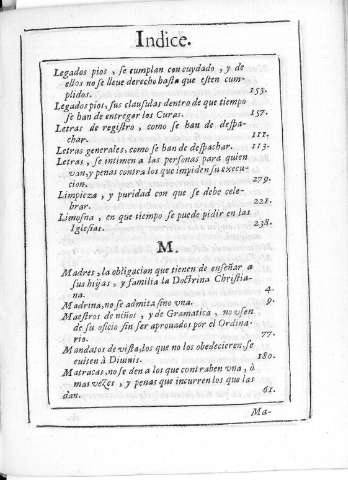 Indice.
Legados pios, se cumplan con cuydado, y de
ellos no se lleue derecho hasta que esten cum-
plidos. 153.
Legados pios, sus clausulas dentro de que tiempo
se han de entregar los Curas. 157.
Letras de registro, como se han de despa-
char. 111.
Letras generales, como se han de despachar. 113.
Letras, se intimen a las personas para quien
van, y penas contra los que impiden su execu-
cion. 279.
Limpieza, y puridad con que se debe cele-
brar. 221.
Limosna, en que tiempo se puede pidir en las
Iglesias. 238.
M.
Madres, la obligacion que tienen de enseñar a
sus hijas, y familia la Doctrina Christia-
na. 4.
Madrina, no se admita sino vna. 9.
Maestros de niños, y de Gramatica, no vsen
de su oficio sin ser aprouados por el Ordina-
rio. 77.
Mandatos de visita, los que no los obedecieren, se
euiten à Diuinis. 180.
Matracas, no se den a los que contrahen vna, ò
mas vezes, y penas que incurren los que las
dan. 61.
Ma-